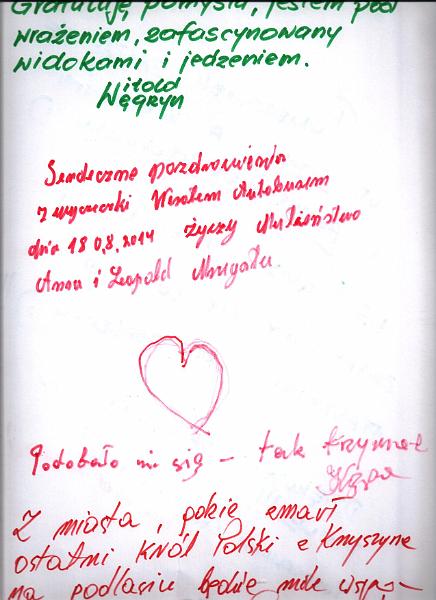 Gratuluję pomysłu, jestem pod
wrażeniem, zafascynowany
widokami i jedzeniem.
Witold
Węgryn
Serdeczne pozdrowienia
z wycieczki Wesołem Autobusem
dnia 18 08, 2014 życzy Małżeństwo
Anna i Leopold
Podobało mi się – tak trzymać
Z miasta, gdzie zmarł
ostatni Król Polski z Knyszyna
na podlasiu będzie mile wspo-